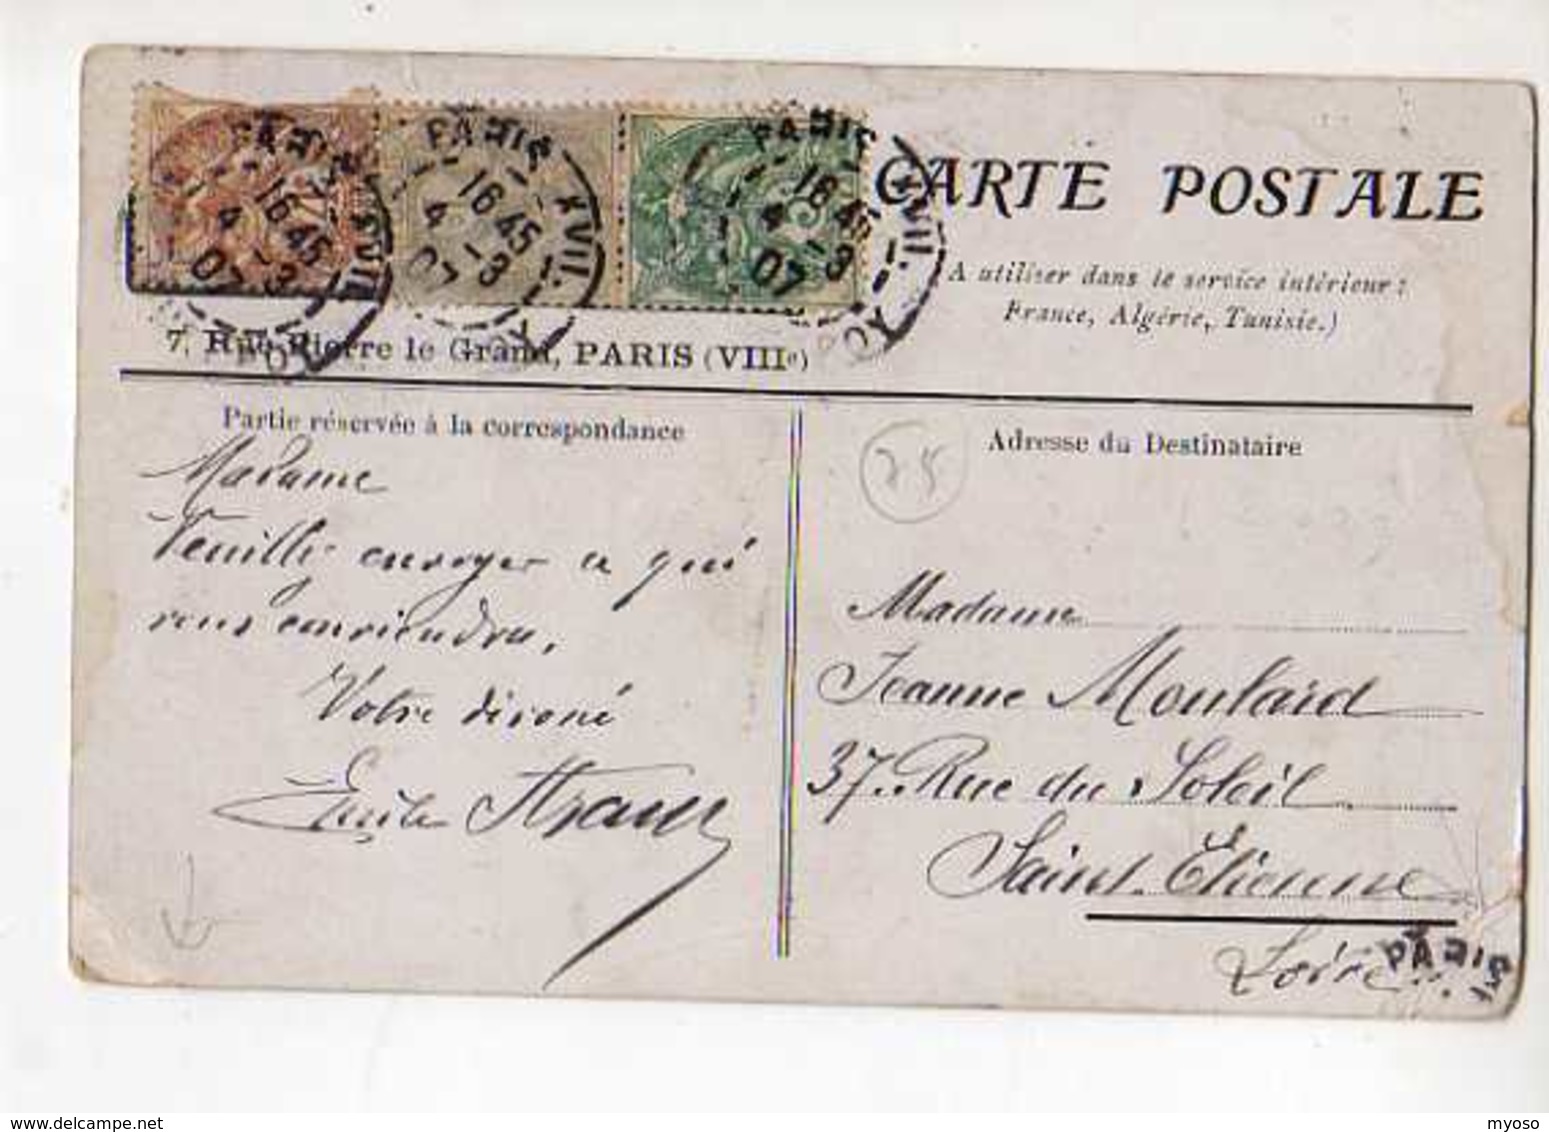 PARIS XVII.
16 45
4 -3
07
PARIS XVII.
16 45
4 -3
07
PARIS XVII.
16 45
4 -3
07
CARTE POSTALE
A utiliser dans le service intérieur :
France, Algérie, Tunisie.)
7, Rue Pierre le Grand, PARIS (VIIIe)
Partie réservée à la correspondance
Adresse du Destinataire
Madame
Veuillez envoyer ce qui
vous conviendra,
Votre dévoué
Emile
Madame
Jeanne Moulard
37. Rue du Soleil
Saint-Etienne
Loire
PARIS
myoso